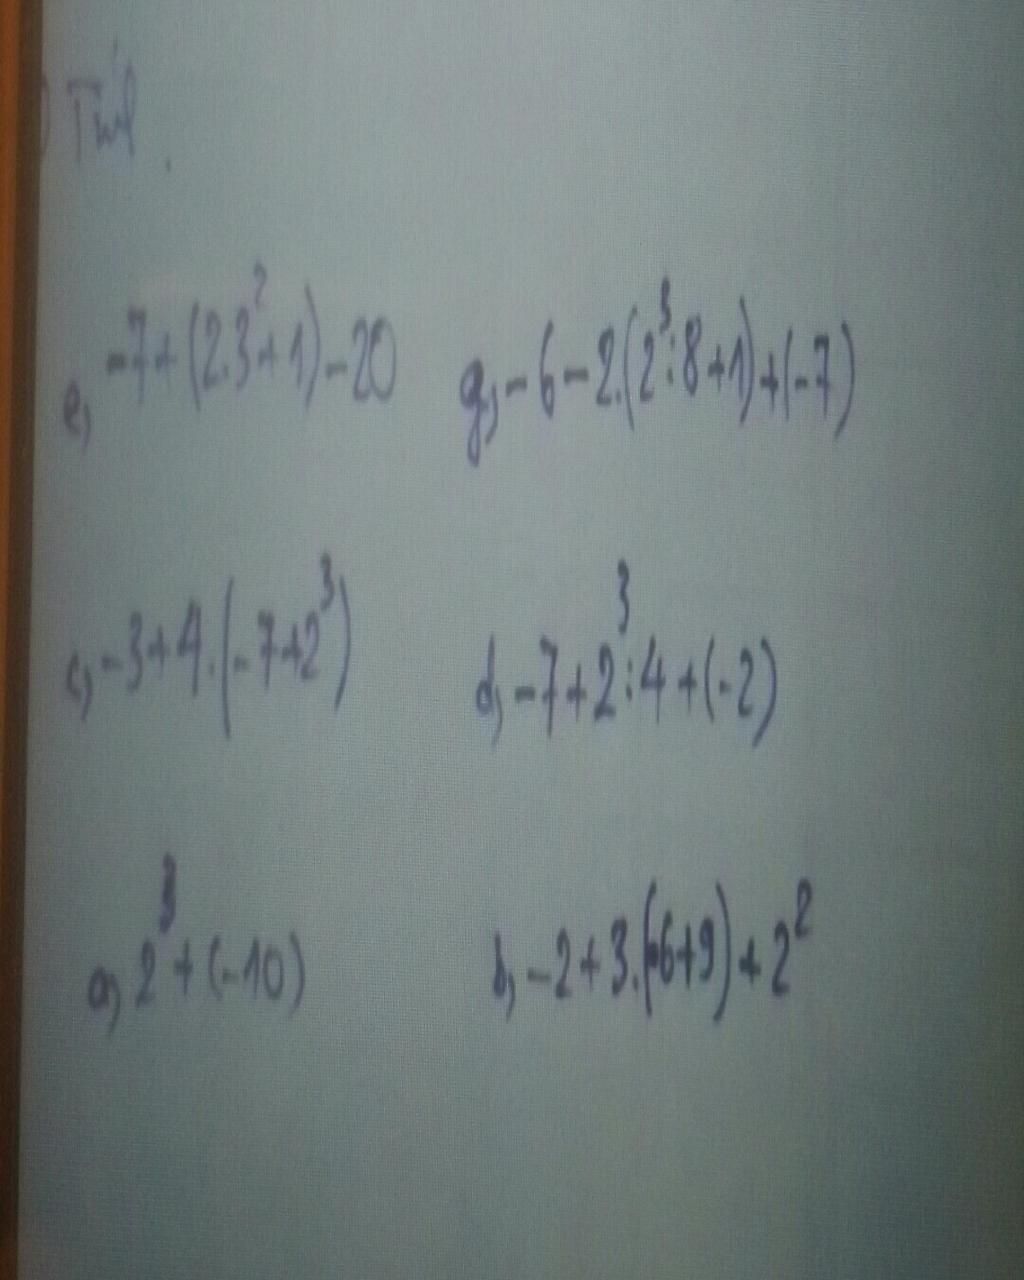 e, -7+(2.3²+1)-20 g, -6-2.(2³:8+1)+(-7)
c, -3+4.(-7+2³) d, -7+2³:4+(-2)
a, 2³+(-10) b, -2+3.(-6+9)+2²